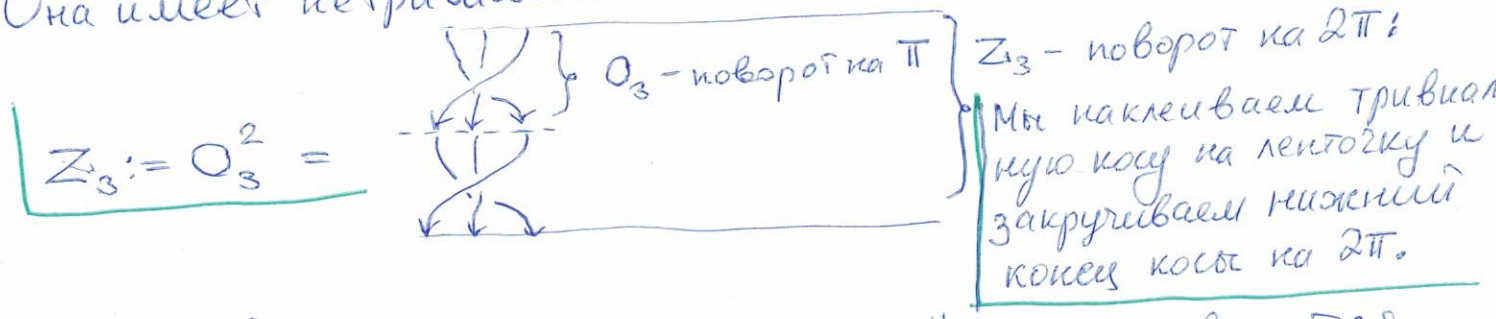 Она имеет
O₃ – поворот на π
Z₃ := O₃² =
Z₃ – поворот на 2π:
Мы наклеиваем тривиаль
ную косу на ленточку и
закручиваем нижний
конец косы на 2π.